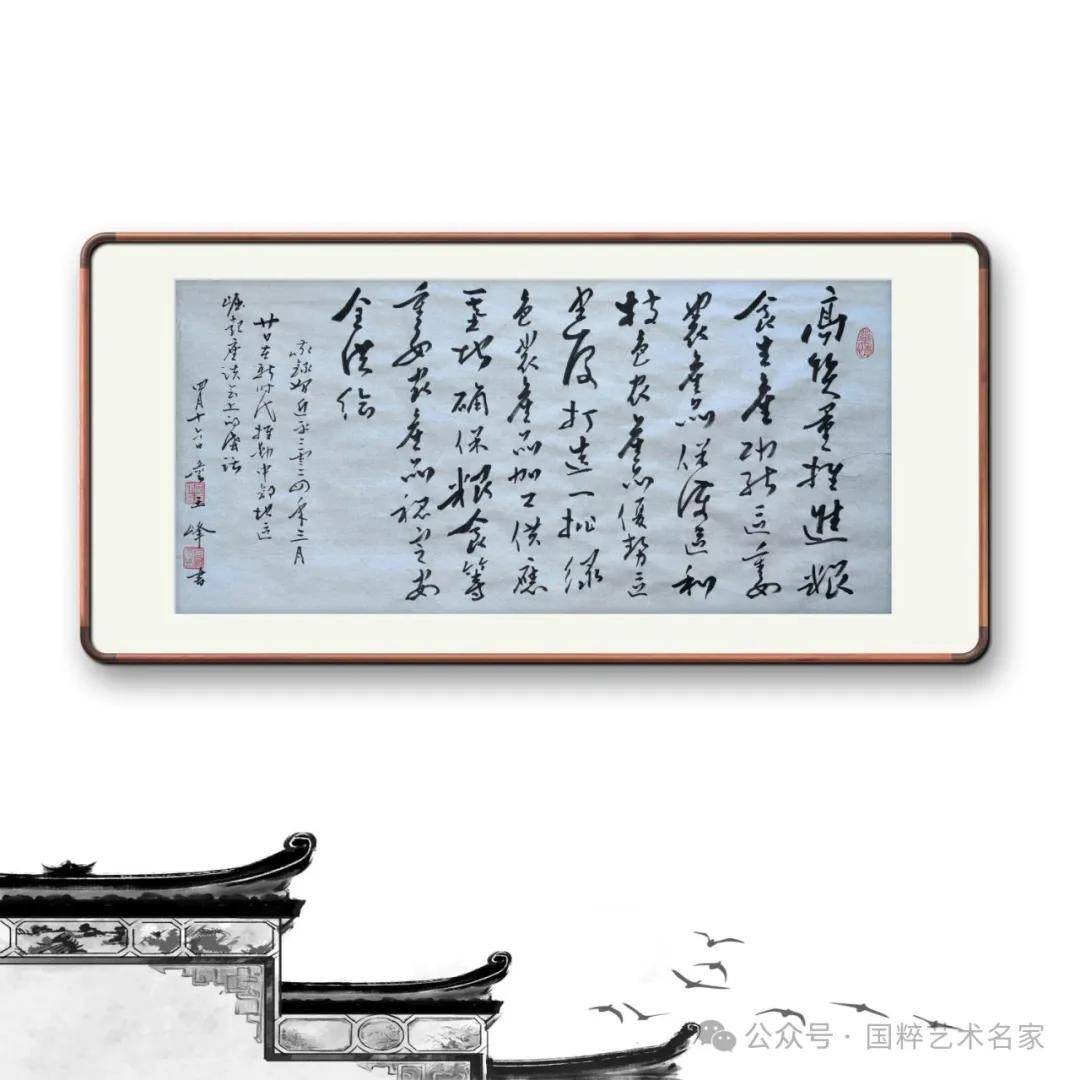 高质量推進粮
食生產功能区重要
農產品保護区和
特色农產品優势区
建设打造一批绿
色農產品加工供應
基地确保粮食等
重要农產品稳定安
全供给
录習近平二零二四年三月
廿日在新时代推动中部地区
崛起座谈会上的讲话
四月十六日 王峰 书
公众号·国粹艺术名家